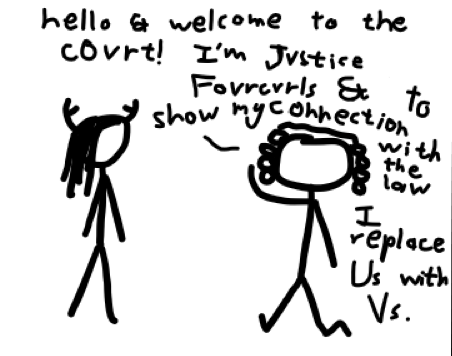 hello & welcome to the
COVrt! I'm JVstice
FovrcVrls & to
show my connection
with
the
law
I
replace
Us with
Vs.